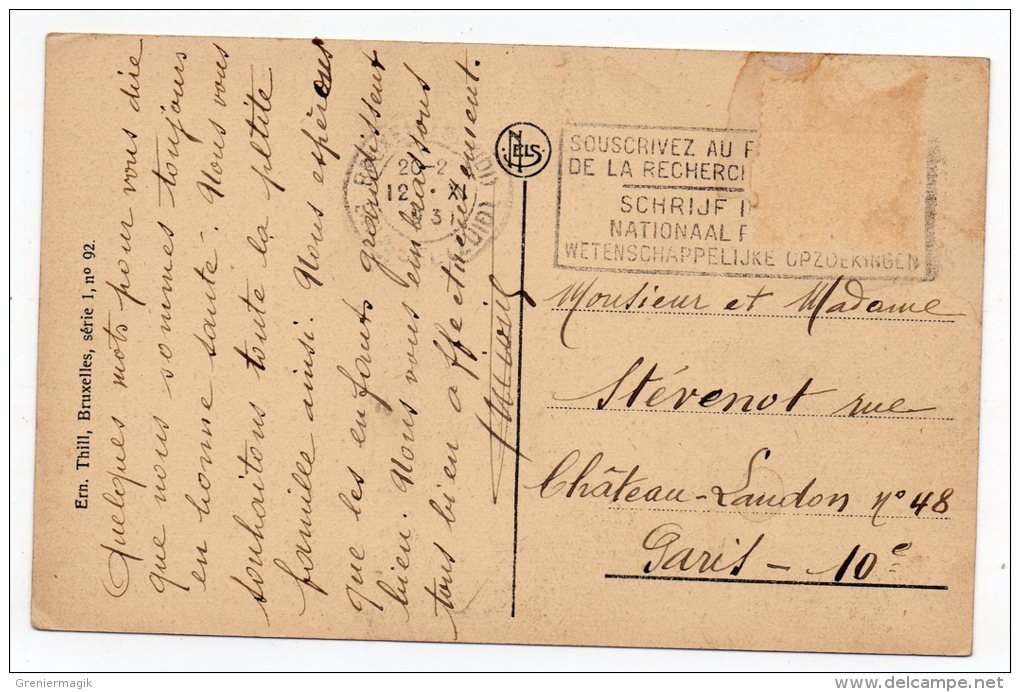 Quelques mots pour vous dire
que nous sommes toujours
en bonne santé. Nous vous
souhaitons toute la petite
famille ainsi. Nous espérons
que les enfants grandissent
bien. Nous vous embrassons
tous bien affectueusement.
Ern. Thill, Bruxelles, série 1, nº 92.
NELS
20-2
12 · XI
3
(ZUID)
SOUSCRIVEZ AU F
DE LA RECHERC
SCHRIJF I
NATIONAAL F
WETENSCHAPPELIJKE OPZOEKINGEN
Monsieur et Madame
Stévenot rue
Château-Landon nº 48
Paris - 10e
Greniermagik
delcampe.net